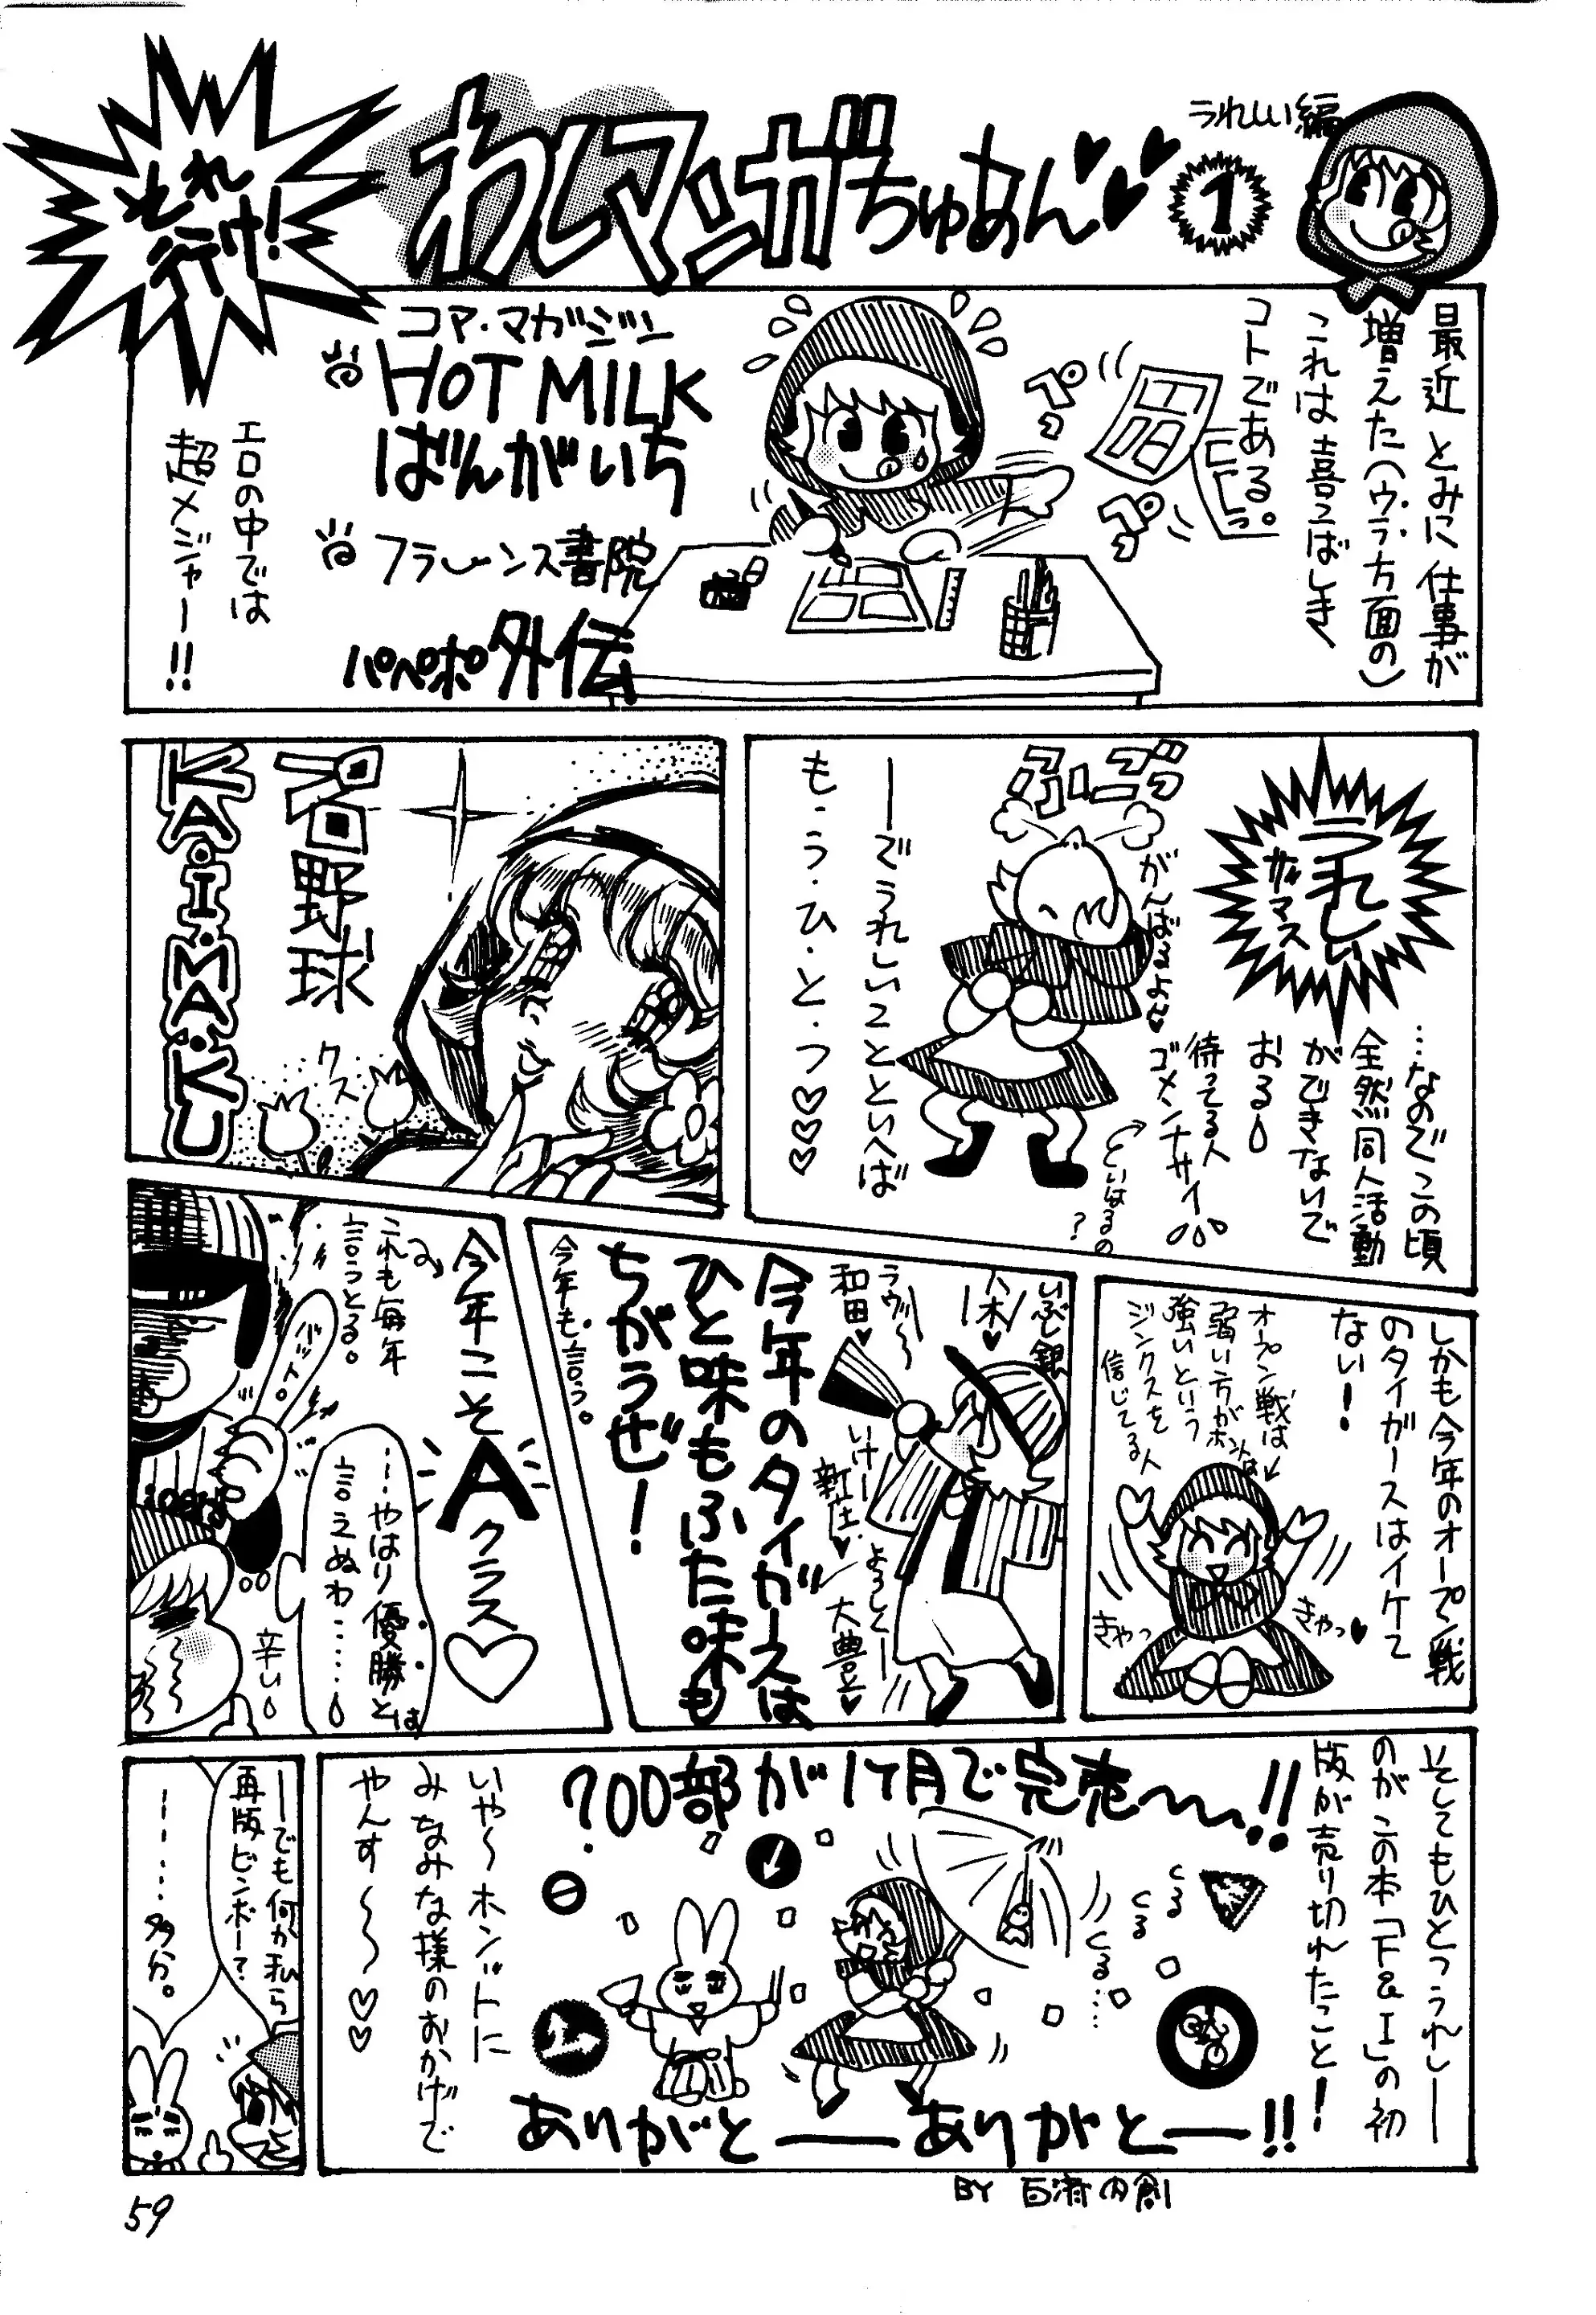 それ
行け!
わしマンガちゅあん♥♥♥
1
うれしい編
最近とみに仕事が
増えた(ウラ方面の)
これは喜こばしき
コトである。
ペコ
ペコ
コア・マガジン
HOT MILK
ばんがいち
フランス書院
パペポ外伝
エロの中では
超メジャー!!
うれしい
…なのでこの頃
全然同人活動
ができないで
おる
待ってる人
ゴメンナサイ
がんばるよォ
といはるの
?
―でうれしいことといへば
も・う・ひ・と・つ♡♡♡
名野球
KA・I・MA・KU
クス
しかも今年のオープン戦
のタイガースはイケて
ない!
オープン戦は
弱い方がホントは
強いという
ジンクスを
信じてる人
きゃっ
きゃっ♥
いぶし銀
八木♥
ラヴ〜
和田♥
いけー
新庄♥
よぉしくー
大豊♥
今年のタイガースは
ひと味もふた味も
ちがうぜ!
今年も言う。
今年こそ
Aクラス♡
これも毎年
言うとる。
ポソ。
…やはり優勝とは
言えぬわ……
辛い
そしてもひとつうれしー
のがこの本「F&I」の初
版が売り切れたこと!
700部が1ヶ月で完売〜〜!!
くる
くる
くる…
いや〜ホンットに
みなみな様のおかげで
やんす〜〜♡♡
ありがとーーありがとー!!
―でも何か私ら
再版ビンボーで
……多分。
BY 百済内創
59